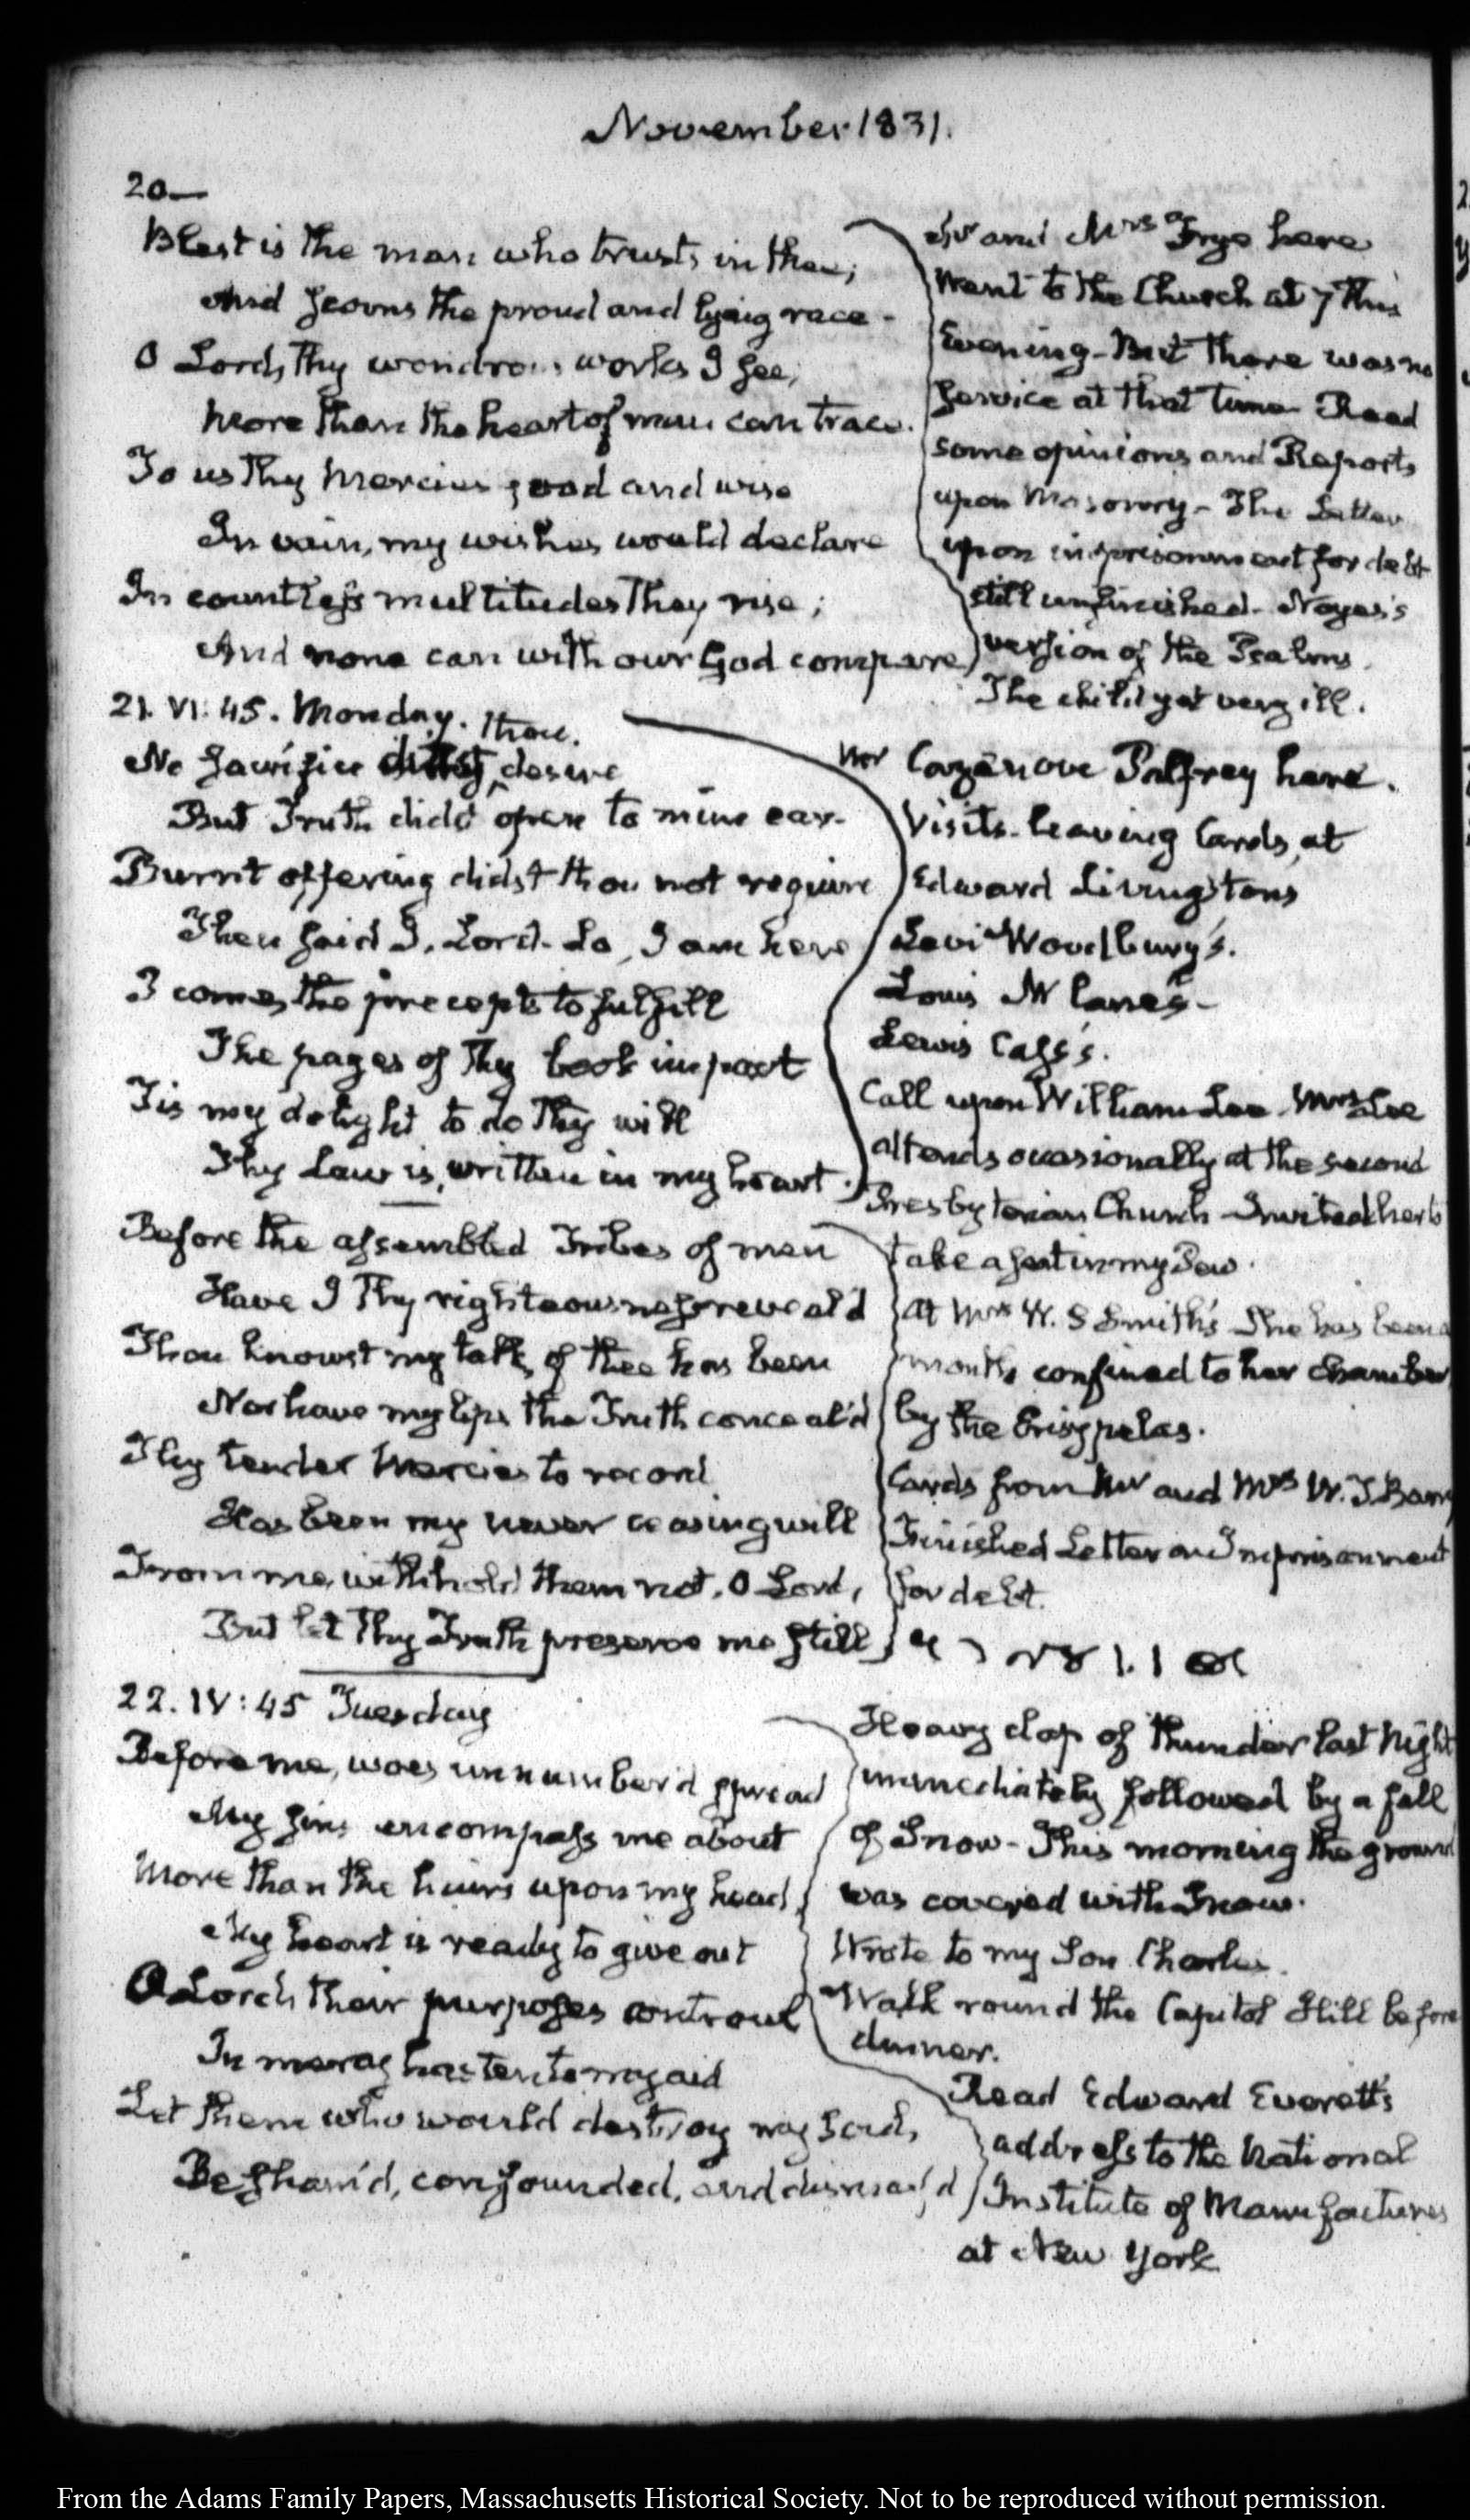 November 1831.
20—
Blest is the man who trusts in thee;
And scorns the proud and lying race-
O Lord, Thy wondrous works I see,
More than the heart of man can trace.
To us Thy Mercies good and wise
In vain, my wishes would declare
In countless multitudes They rise;
And none can with our God compare
and Mrs Frye here
Went to the Church at 7 this
Evening- But there was no
service at that time Read
some opinions and Reports
upon Masonry- The Letter
upon imprisonment for debt
still unfinished- Noyes's
version of the Psalms.
The child yet very ill.
21. VI: 45. Monday.
thou
No sacrifice didst, desire
But Truth didst open to mine ear-
Burnt offering didst thou not require
Then said I, Lord- Lo, I am here
I come, the precepts to fulfill
The pages of Thy book impart
Tis my delight to do Thy will
Thy Law is, written in my heart.
Before the assembled Tribes of men
Have I Thy righteousness reveal'd
Thou knowst my talk, of thee has been
Nor have my lips the Truth conceal'd
Thy tender Mercies to record
Has been my never ceasing will
From me, withhold them not, O Lord,
But let Thy Truth preserve me still
Mr Cazenove Palfrey here.
Visits- leaving Cards, at
Edward Livingstons
Levi Woodbury's.
Louis McLane's-
Lewis Cass's.
Call upon William Lee. Mrs Lee
attends occasionally at the second
Presbyterian Church- Invited her to
take a seat in my Pew.
At Mrs W. S Smith's She has been a
month confined to her chamber
by the Erisypelas.
Cards from Mr and Mrs W. T. Barry
Finished Letter on Imprisonment
for debt.
22. IV: 45 Tuesday
Before me, woes unnumber'd spread
My sins encompass me about
More than the hairs upon my head,
My heart is ready to give out
O Lord, their purposes controul
In mercy hasten to my aid
Let them who would destroy my Soul,
Be sham'd, confounded, and dismay'd
Heavy clap of thunder last Night
immediately followed by a fall
of Snow- This morning the ground
was covered with Snow.
Wrote to my Son Charles.
Walk round the Capitol Hill before
dinner.
Read Edward Everett's
address to the National
Institute of Manufactures
at New York
From the Adams Family Papers, Massachusetts Historical Society. Not to be reproduced without permission.